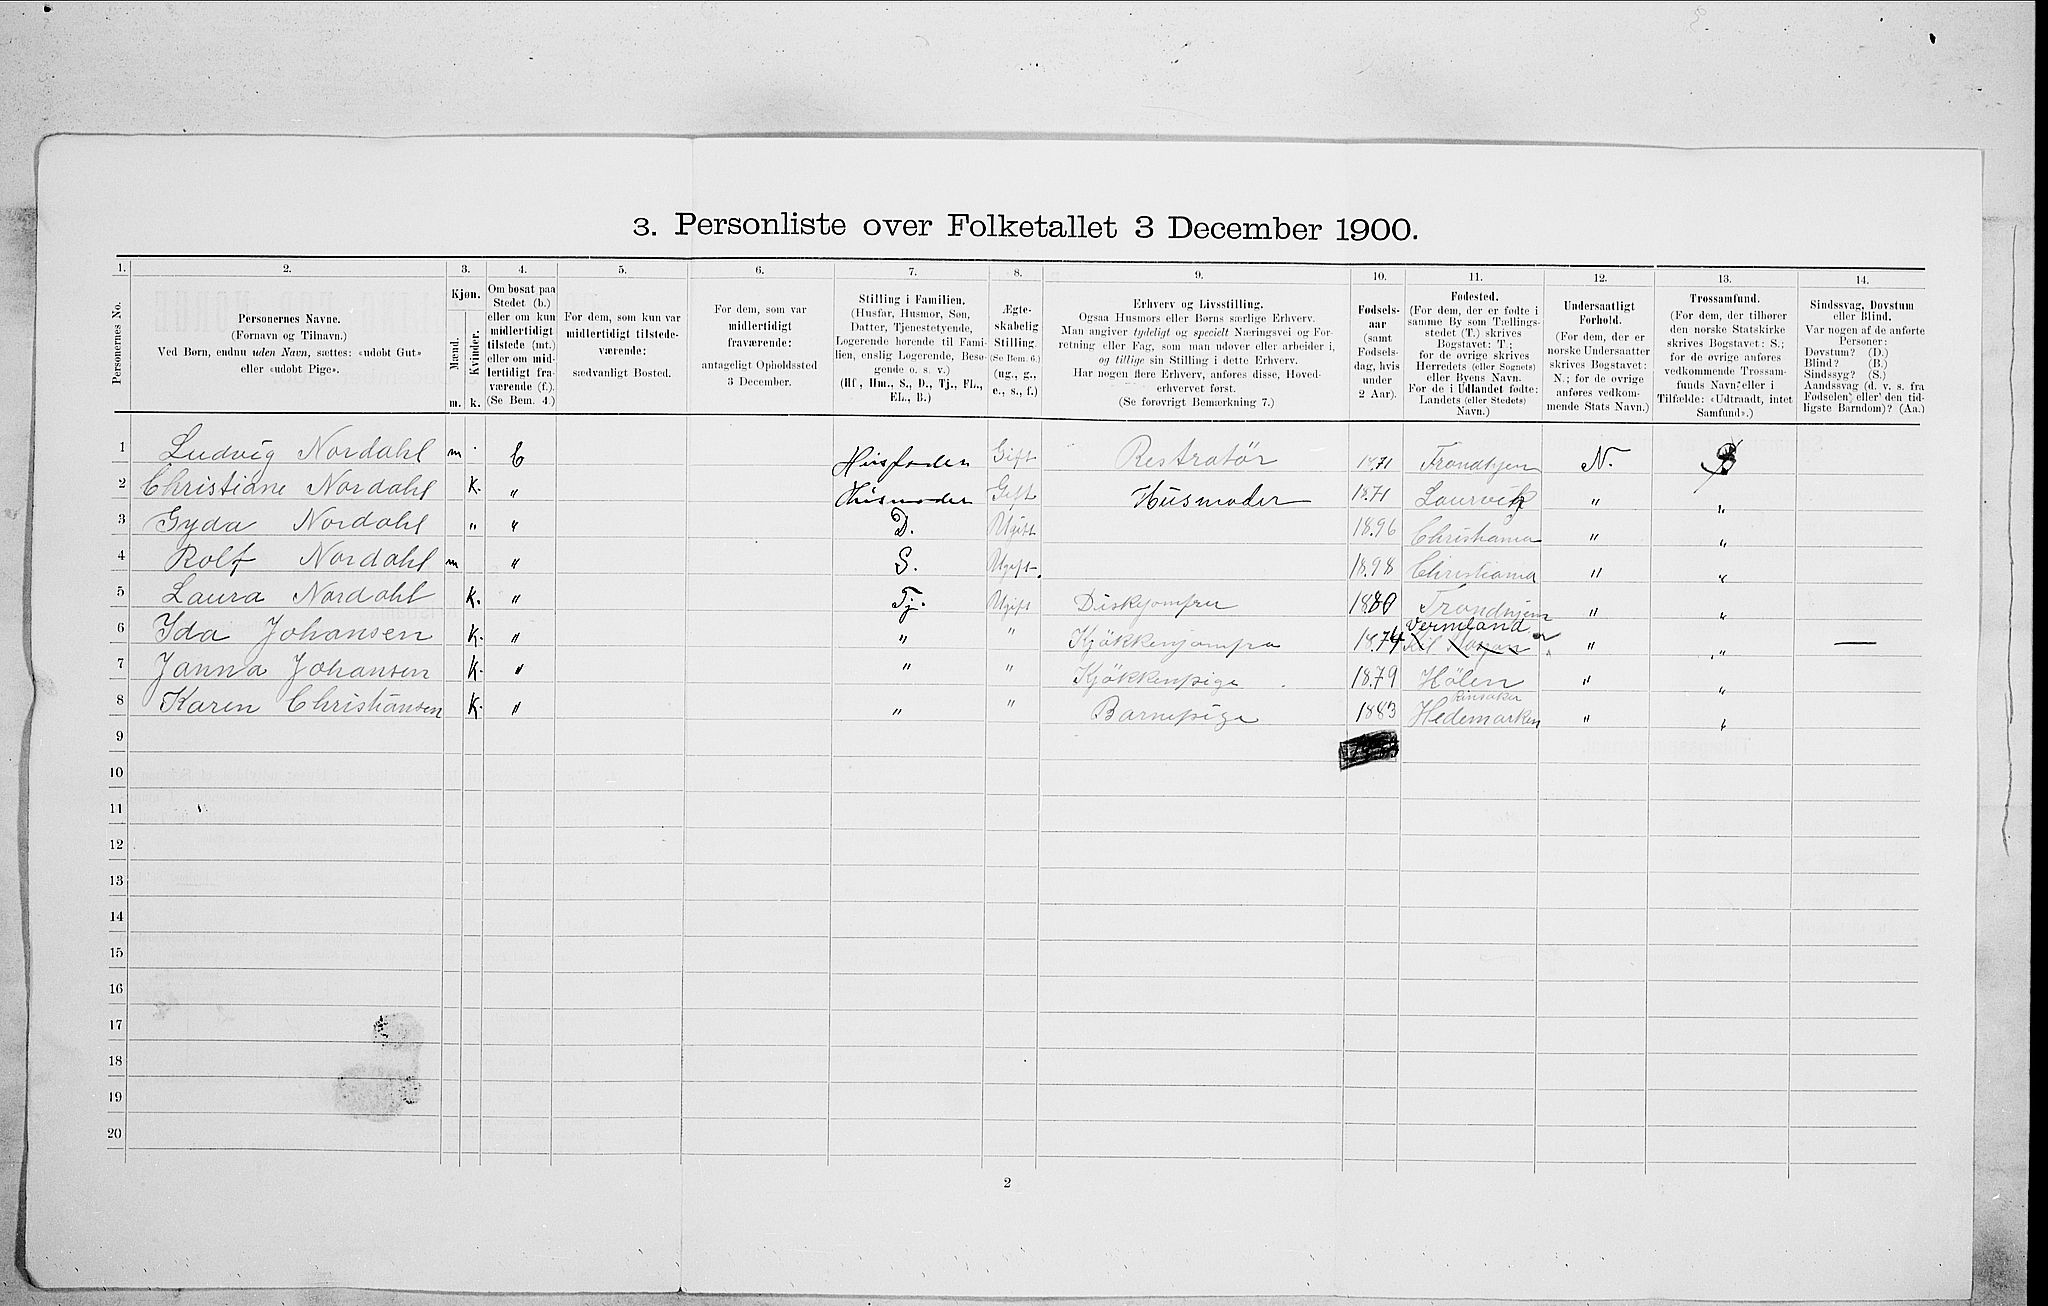 3. Personliste over Folketallet 3 December 1900.
1. 2. 3. 4. 5. 6. 7. 8. 9. 10. 11. 12. 13. 14.
Personernes No.
Personernes Navne.
(Fornavn og Tilnavn.)
Ved Børn, endnu uden Navn, sættes: «udobt Gut»
eller «udobt Pige».
Kjøn.
Mænd.
Kvinder.
m. k.
Om bosat paa
Stedet (b.)
eller om kun
midlertidigt
tilstede (mt.)
eller om mid-
lertidigt fra-
værende (f.).
(Se Bem. 4.)
For dem, som kun var
midlertidigt tilstede-
værende:
sædvanligt Bosted.
For dem, som var
midlertidigt
fraværende:
antageligt Opholdssted
3 December.
Stilling i Familien.
(Husfar, Husmor, Søn,
Datter, Tjenestetyende,
Logerende hørende til Fami-
lien, enslig Logerende, Besø-
gende o. s. v.)
(Hf., Hm., S., D., Tj., FL.,
EL., B.)
Ægte-
skabelig
Stilling.
(Se Bem. 6.)
(ug., g.,
e., s., f.)
Erhverv og Livsstilling.
Ogsaa Husmors eller Børns særlige Erhverv.
Man angiver tydeligt og specielt Næringsvei og For-
retning eller Fag, som man udøver eller arbeider i,
og tillige sin Stilling i dette Erhverv.
Har nogen flere Erhverv, anføres disse, Hoved-
erhvervet først.
(Se forøvrigt Bemærkning 7.)
Fødsels-
aar
(samt
Fødsels-
dag, hvis
under
2 Aar).
Fødested.
(For dem, der er fødte i
samme By som Tællings-
stedet (T.) skrives
Bogstavet: T.;
for de øvrige skrives
Herredets (eller Sognets)
eller Byens Navn.
For de i Udlandet fødte:
Landets (eller Stedets)
Navn.)
Undersaatligt
Forhold.
(For dem, der er
norske Undersaatter
skrives Bogstavet:
N.; for de øvrige
anføres vedkom-
mende Stats Navn.)
Trossamfund.
(For dem, der tilhører
den norske Statskirke
skrives Bogstavet: S.;
for de øvrige anføres
vedkommende Trossam-
funds Navn, eller i
Tilfælde: «Udtraadt, intet
Samfund».)
Sindssvag, Døvstum
eller Blind.
Var nogen af de anførte
Personer:
Døvstum? (D.)
Blind? (B.)
Sindssyg? (S.)
Aandssvag (d. v. s. fra
Fødselen eller den tid-
ligste Barndom)? (Aa.)
1 Ludvig Nordahl m b Husfader Gift Restratör 1871 Trondhjem N.
2 Christiane Nordahl K. " Husmoder Gift Husmoder 1871 Laurvik " "
3 Gyda Nordahl " " D. Ugift 1896 Christiania " "
4 Rolf Nordahl m " S. Ugift. 1898 Christiania " "
5 Laura Nordahl K. " Tj. Ugift Diskjomfru 1880 Trondhjem " "
Vermland
6 Ida Johansen K. " " " Kjökkenjomfru 1874 " " —
7 Janna Johansen K. " " " Kjökkenpige 1879 Hölen " "
Rinsaker
8 Karen Christiansen K. " " " Barnepige 1883 Hedemarken " "
9
10
11
12
13
14
15
16
17
18
19
20
2